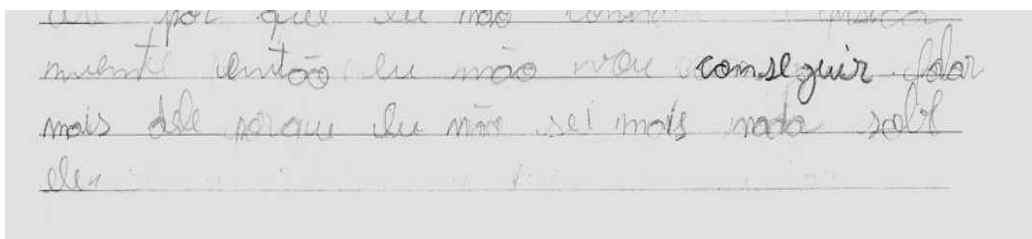 por que eu não
mente então eu não vou conseguir falar
mais dele porque eu não sei mais nada sobre
ele